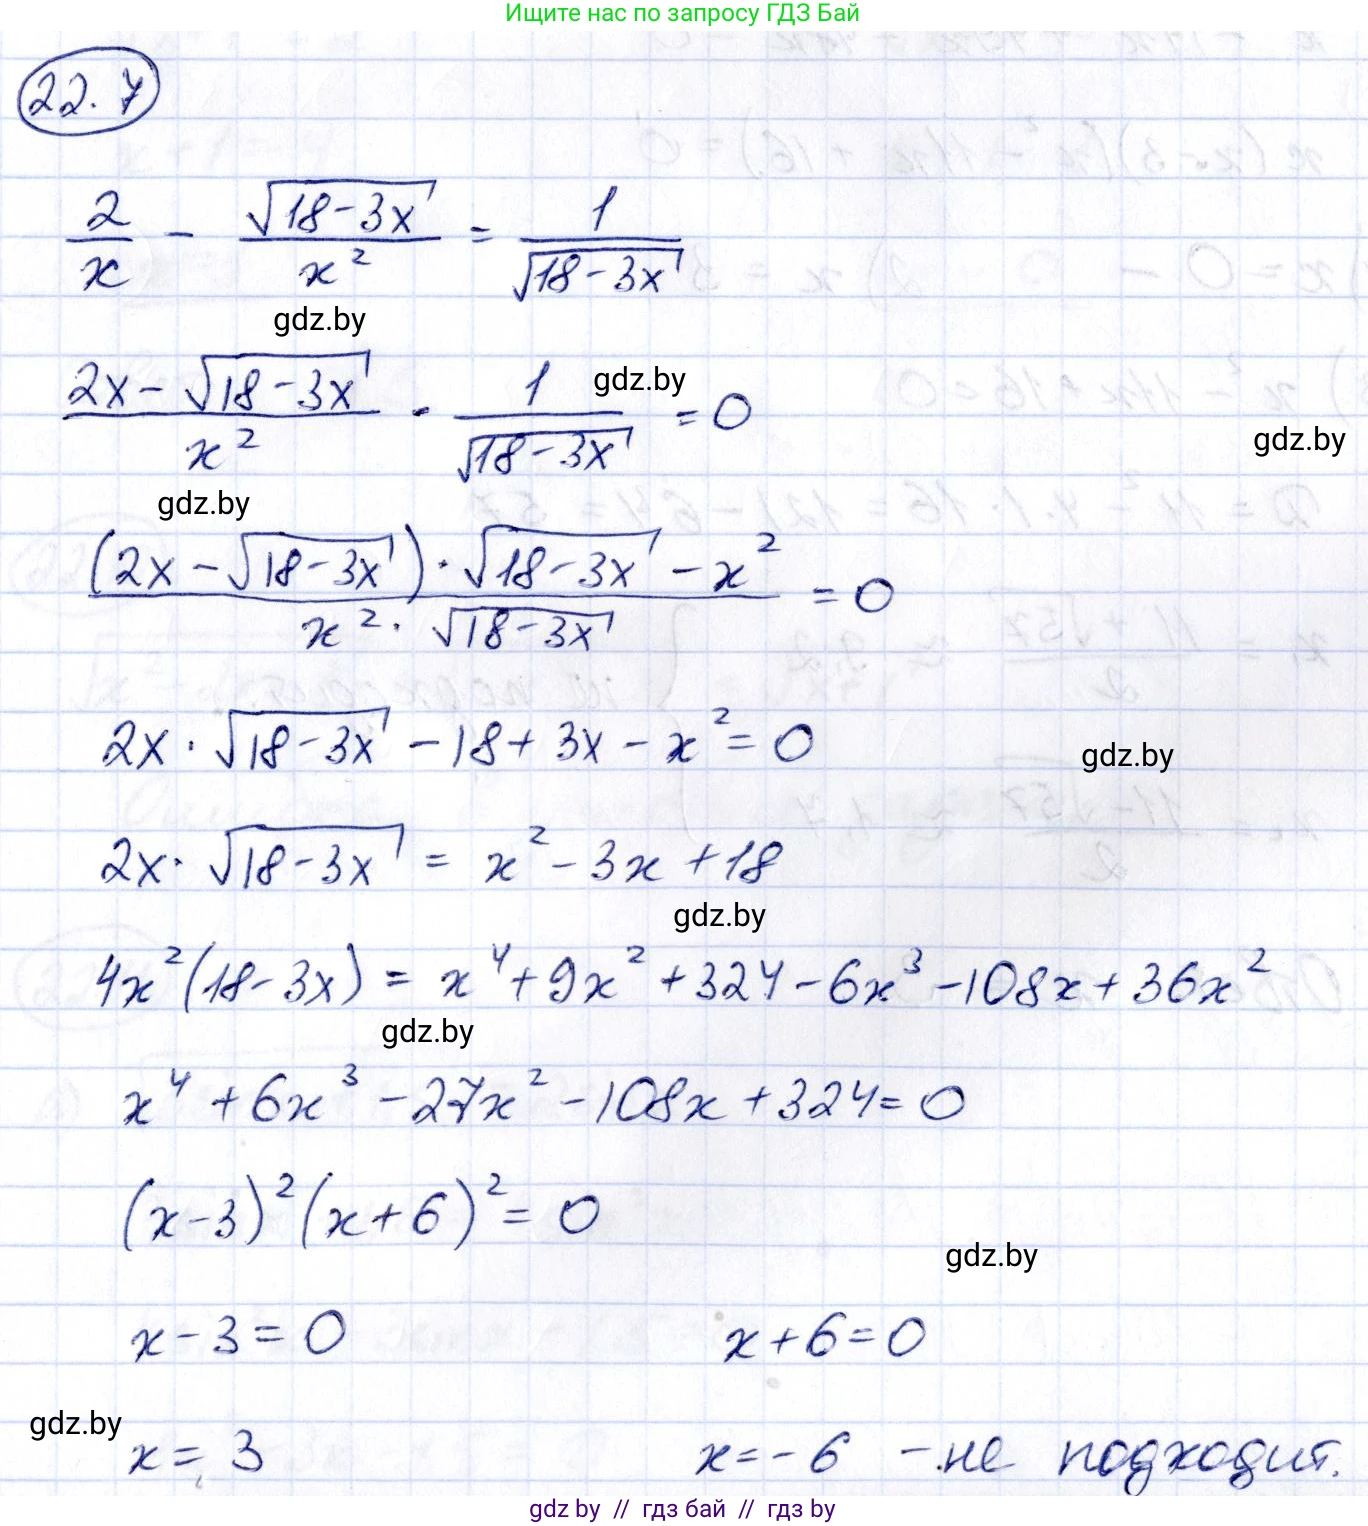 Ищите нас по запросу ГДЗ Бай
22.7
2/x - √(18-3x)/x² = 1/√(18-3x)
gdz.by
gdz.by
(2x-√(18-3x))/x² - 1/√(18-3x) = 0
gdz.by
gdz.by
((2x-√(18-3x))·√(18-3x) - x²)/(x²·√(18-3x)) = 0
2x·√(18-3x) - 18 + 3x - x² = 0
gdz.by
2x·√(18-3x) = x² - 3x + 18
gdz.by
4x²(18-3x) = x⁴ + 9x² + 324 - 6x³ - 108x + 36x²
gdz.by
x⁴ + 6x³ - 27x² - 108x + 324 = 0
(x-3)²(x+6)² = 0
gdz.by
x-3=0 x+6=0
gdz.by
x=3 x=-6 - не подходит.
gdz by // гдз бай // гдз by